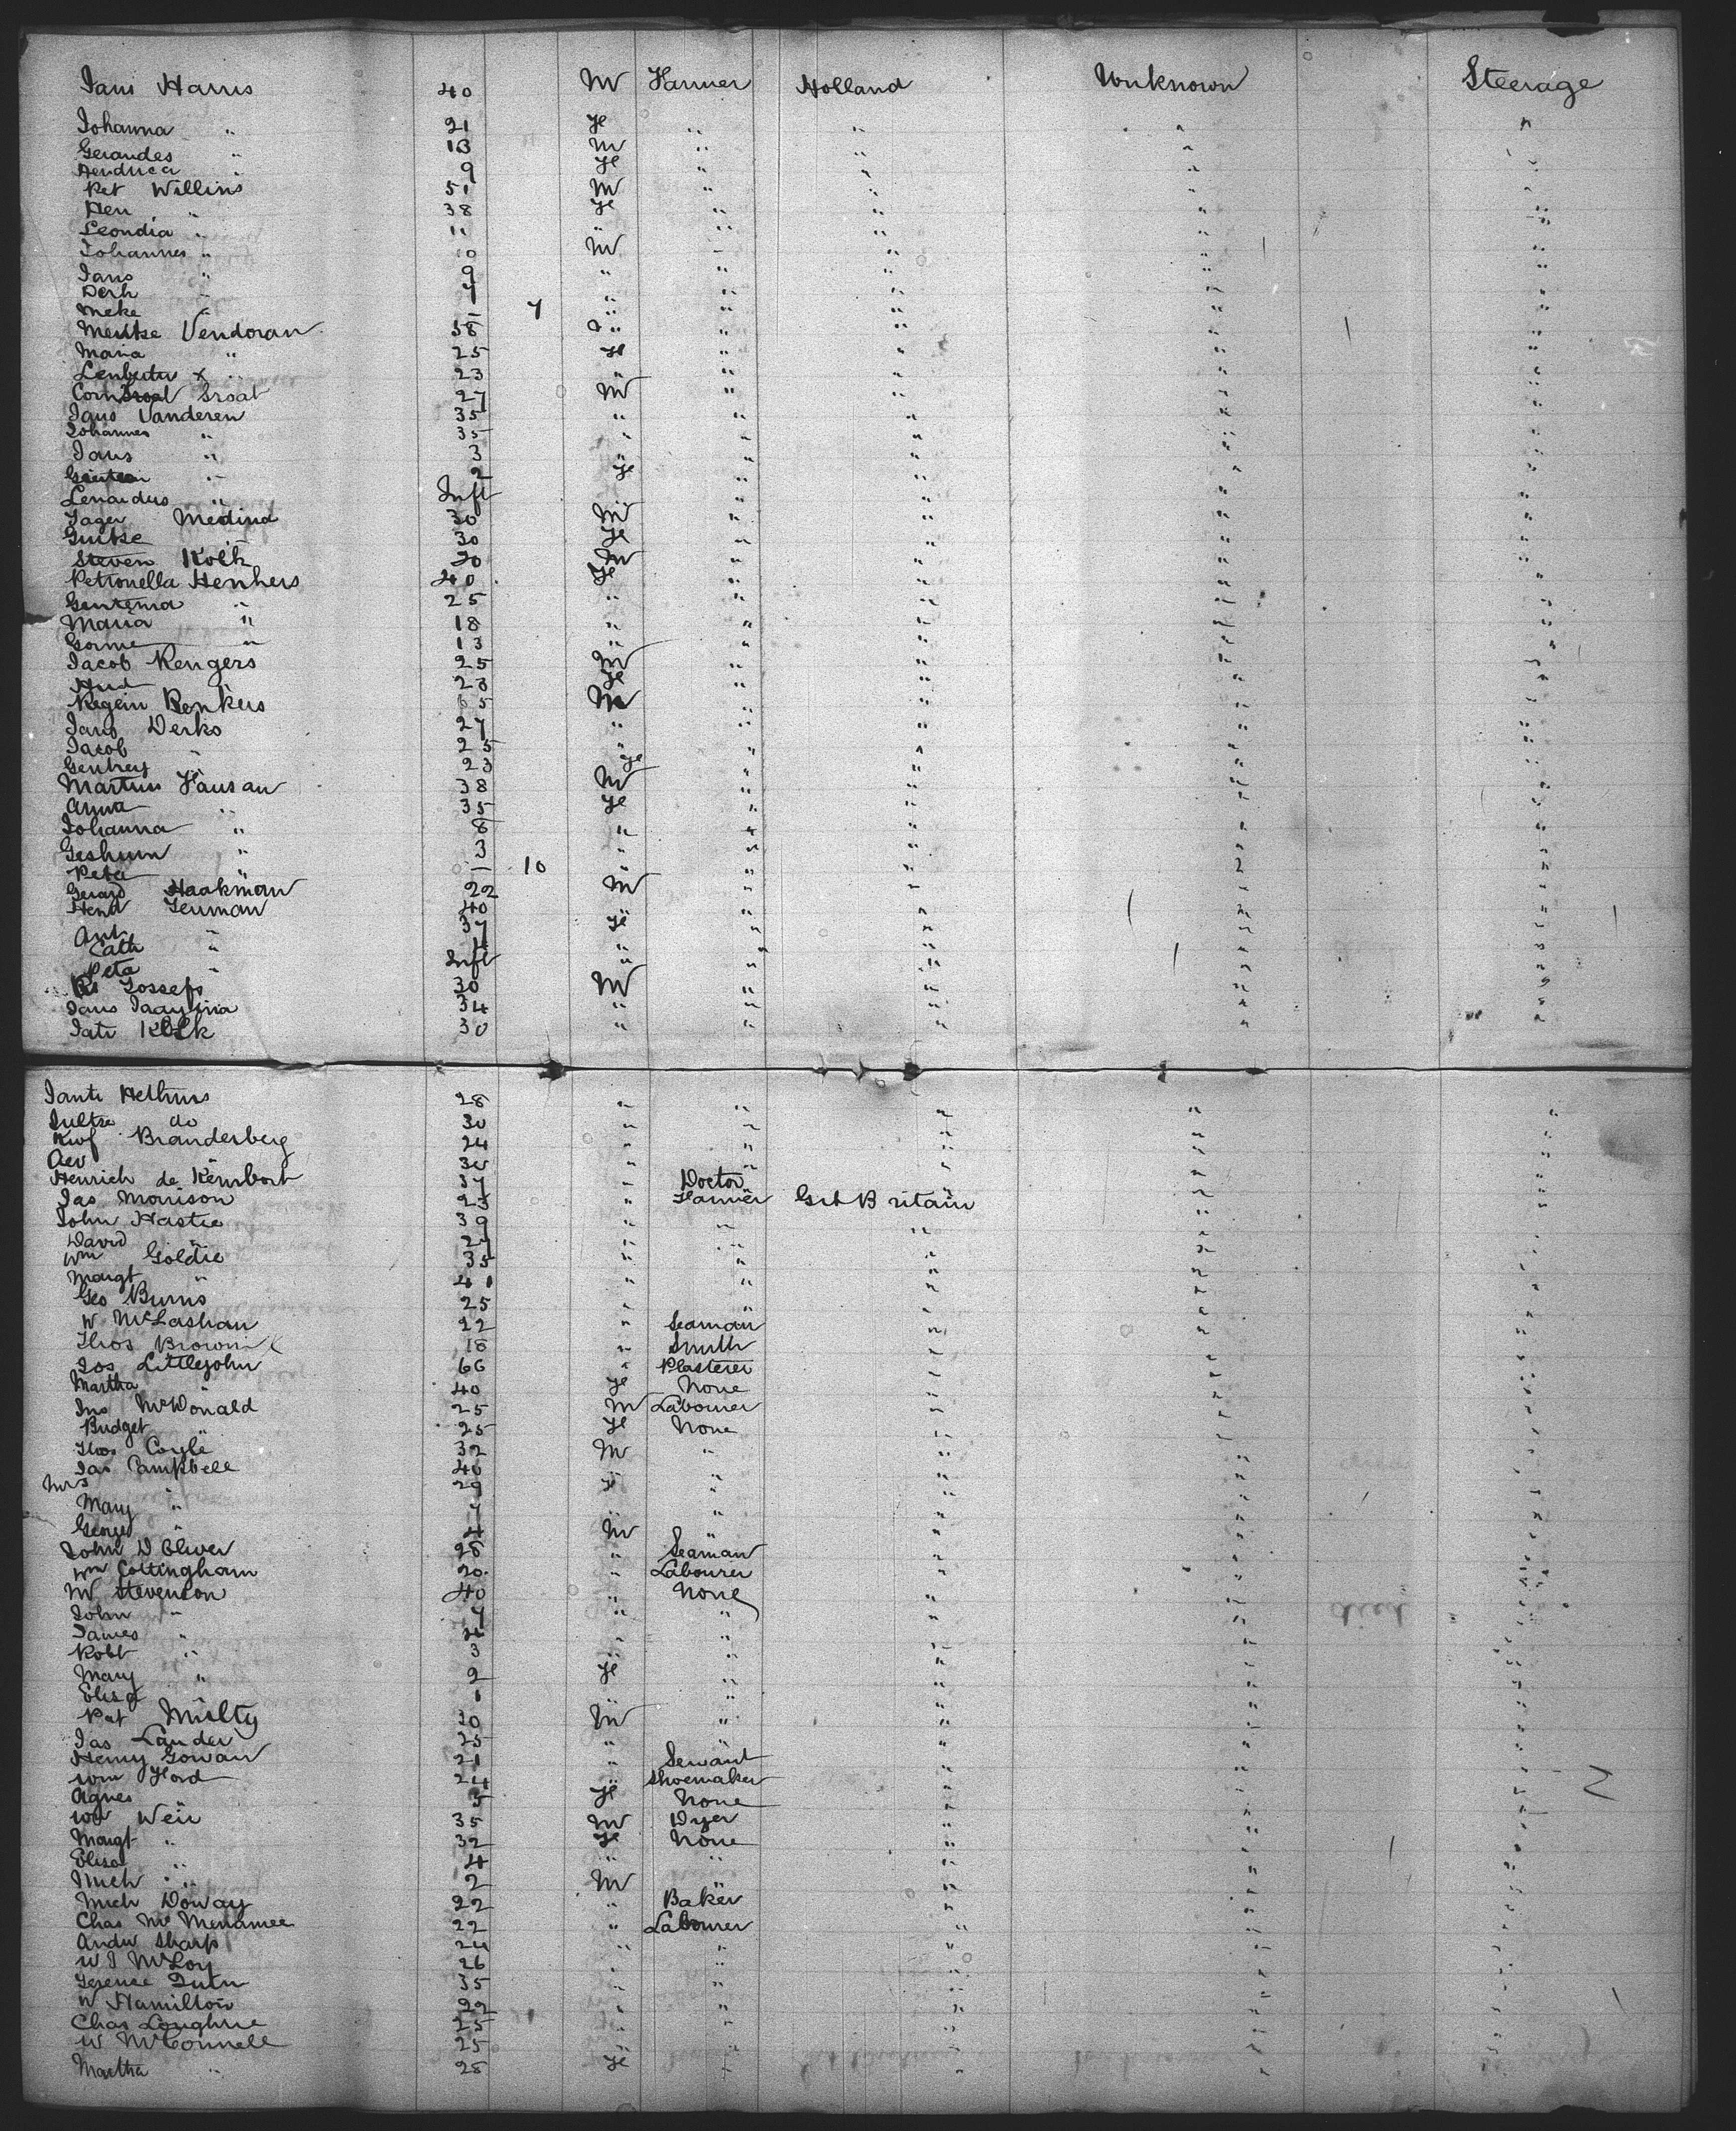 Jans Harris 40 M Farmer Holland Unknown Steerage
Johanna " 21 Fe " " " "
Gerandes " 13 M " " " "
Hendrica " 9 Fe " " " "
Pet Willins 51 M " " " "
Hen " 38 Fe " " " "
Leondia " 11 " " " " "
Johannes " 10 M " " " "
Jans " 9 " " " " "
Derk " 7 " " " " "
Meke " 1 7 " " " " "
Mentse Vendoran 58 " " " " "
Maria " 25 Fe " " " "
Lenbertu x " 23 " " " " "
Corn Sroat 27 M " " " "
Jans Vanderen 35 " " " " "
Johannes " 35 " " " " "
Jans " 3 " " " " "
" 2 Fe " " " "
Lenardus " Inft " " " "
Jager Medina 30 M " " " "
Guitse 30 Fe " " " "
Steven Kolk 20 M " " " "
Petronella Henkers 40 Fe " " " "
Gentema " 25 " " " " "
Maria " 18 " " " " "
Gorme " 13 " " " " "
Jacob Rengers 25 M " " " "
And 28 Fe " " " "
Regein Renkers 5 M " " " "
Jans Derks 27 " " " " "
Jacob " 25 " " " " "
Genhey " 23 Fe " " " "
Martins Hausan 38 M " " " "
Anna " 35 Fe " " " "
Johanna " 8 " " " " "
Geshum " 3 " " " " "
Peta " 1 10 " " " " "
Gerard Haakman 22 M " " " "
Hend Jenman 40 " " " "
Ant " 37 Fe " " " "
Cath " 7 " " " " "
Peta " Inft " " " " "
Jossefs 30 M " " " "
Jans 34 " " " " "
Jate Kolk 30 " " " " "
Jante Hethuis 28 " " " " "
Jultse do 30 " " " " "
Branderberg 24 " " " " "
Aev " 30 " " " " "
Henrich de Kembort 37 " Doctor " " "
Jas Morrison 23 " Farmer Grt Britain " "
John Hastie 39 " " " " "
David " 27 " " " " "
Wm Goldie 35 " " " " "
Margt " 41 " " " " "
Geo Burns 25 " " " " "
W McLashan 22 " Seaman " " "
Thos Brown 18 " Smith " " "
Jos Littlejohn 66 " Plasterer " " "
Martha " 40 Fe None " " "
Jno McDonald 25 M Labourer " " "
Bridget " 25 Fe None " " "
Thos Coyle 32 M " " " "
Jas Campbell 40 " " " "
Mrs " 29 Fe " " " "
Mary " 7 " " " " "
George " 4 M " " " "
John D Oliver 28 " Seaman " " "
Wm Cottingham 20 " Labourer " " "
W Stevenson 40 " None " " "
John " 7 " " " " "
James " 4 " " " " "
Robt " 3 " " " " "
Mary " 2 Fe " " " "
Elisa " 1 " " " " "
Pat Multy 20 M " " " "
Jas Lauder 25 " " " " "
Henry Gowan 21 " Servant " " "
Wm Ford 24 " Shoemaker " " "
Agnes " 5 Fe None " " "
Wm Weir 35 M Dyer " " "
Margt " 32 Fe None " " "
Elisa " 4 " " " " "
Mich " 2 M " " "
Mich Donay 22 " Baker " " "
Chas McMenamee 22 " Labourer " " "
Andw Sharp 24 " " " " "
W J McLoy 26 " " " " "
Terence Quin 35 " " " " "
W Hamilton 22 " " " " "
Chas Loughrie 25 " " " " "
W McConnell 25 " " " " "
Martha " 25 Fe " " " "